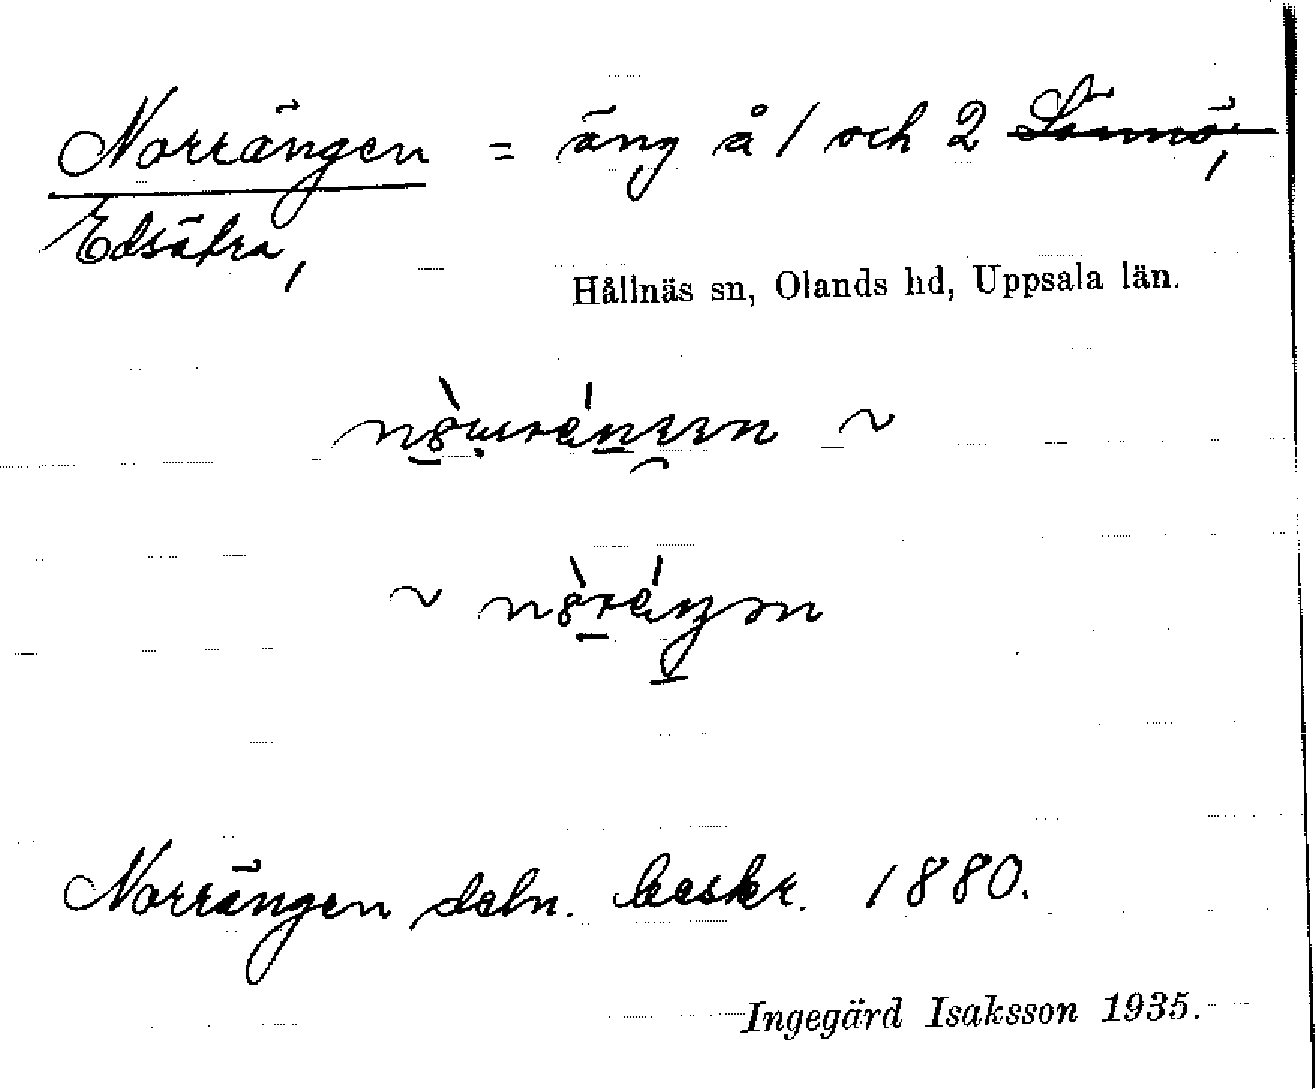 Norrängen = äng å 1 och 2 Sännö,
Edsätra,
Hållnäs sn, Olands hd, Uppsala län.
~
~
Norrängen deln. beskr. 1880.
Ingegärd Isaksson 1935.